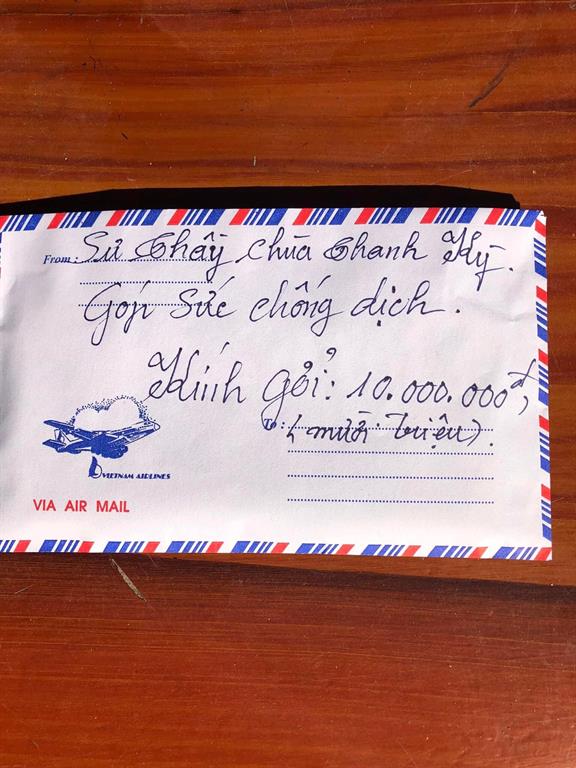 From: Sư Thầy chùa Thanh Kỳ.
Góp sức chống dịch.
Kính gởi: 10.000.000đ,
To: (mười triệu).
VIETNAM AIRLINES
VIA AIR MAIL